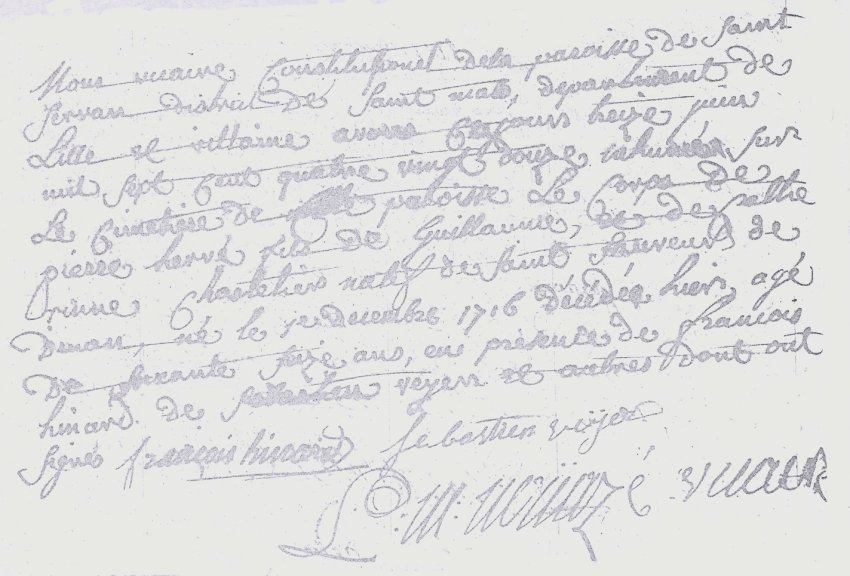 Nous vicaire Constitutionel dela paroisse de Saint
Servan district de Saint malo, departement de
Lille et villaine avons Ce jour treize juin
mil sept Cent quatre vingt douze inhumé sur
Le Cimetiere de notre paroisse Le Corps de
pierre hervé fils de Guillaume, et de
Chastelier natif de Saint Sauveur de
Dinan, né le 1er decembre 1716 décédé hier agé
De soixante seize ans, en présence de françois
hinard de Sebastien voyer et autres dont ont
signés françois hinard Sebastien voyer
vicaire